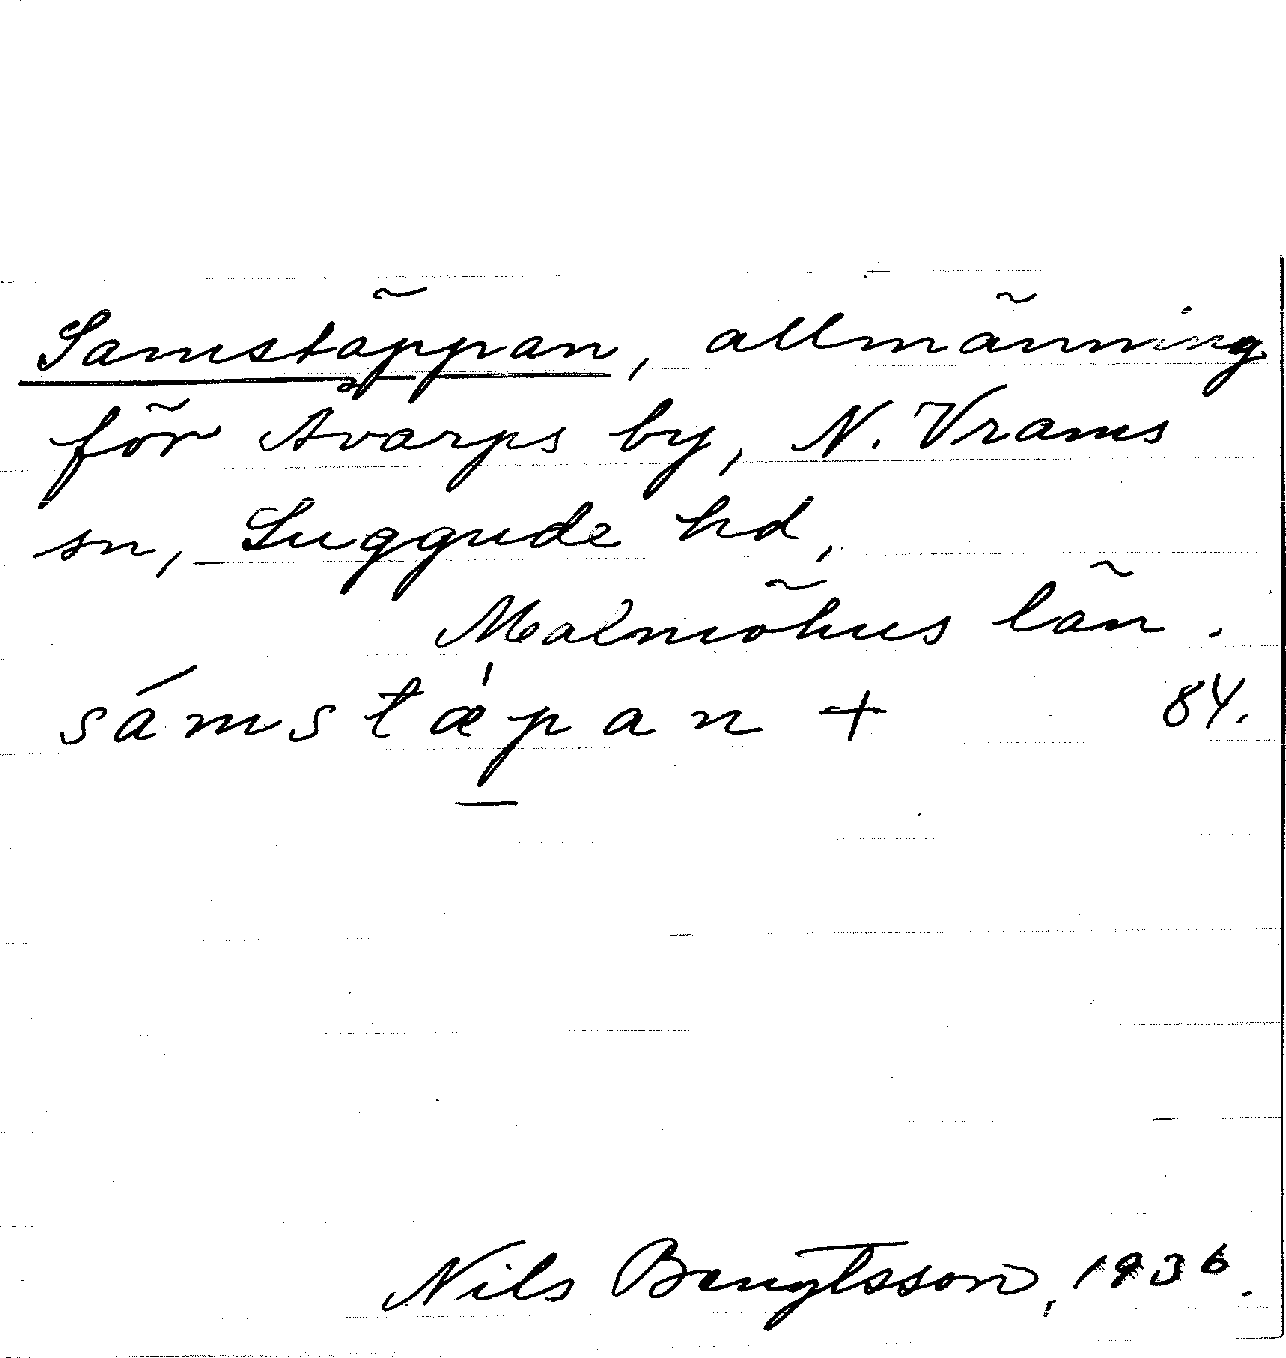 Samstäppan, allmänning
för Åvarps by, N. Vrams
sn, Luggude hd,
Malmöhus län.
sámstæ̀pan + 84.
Nils Bengtsson, 1936.